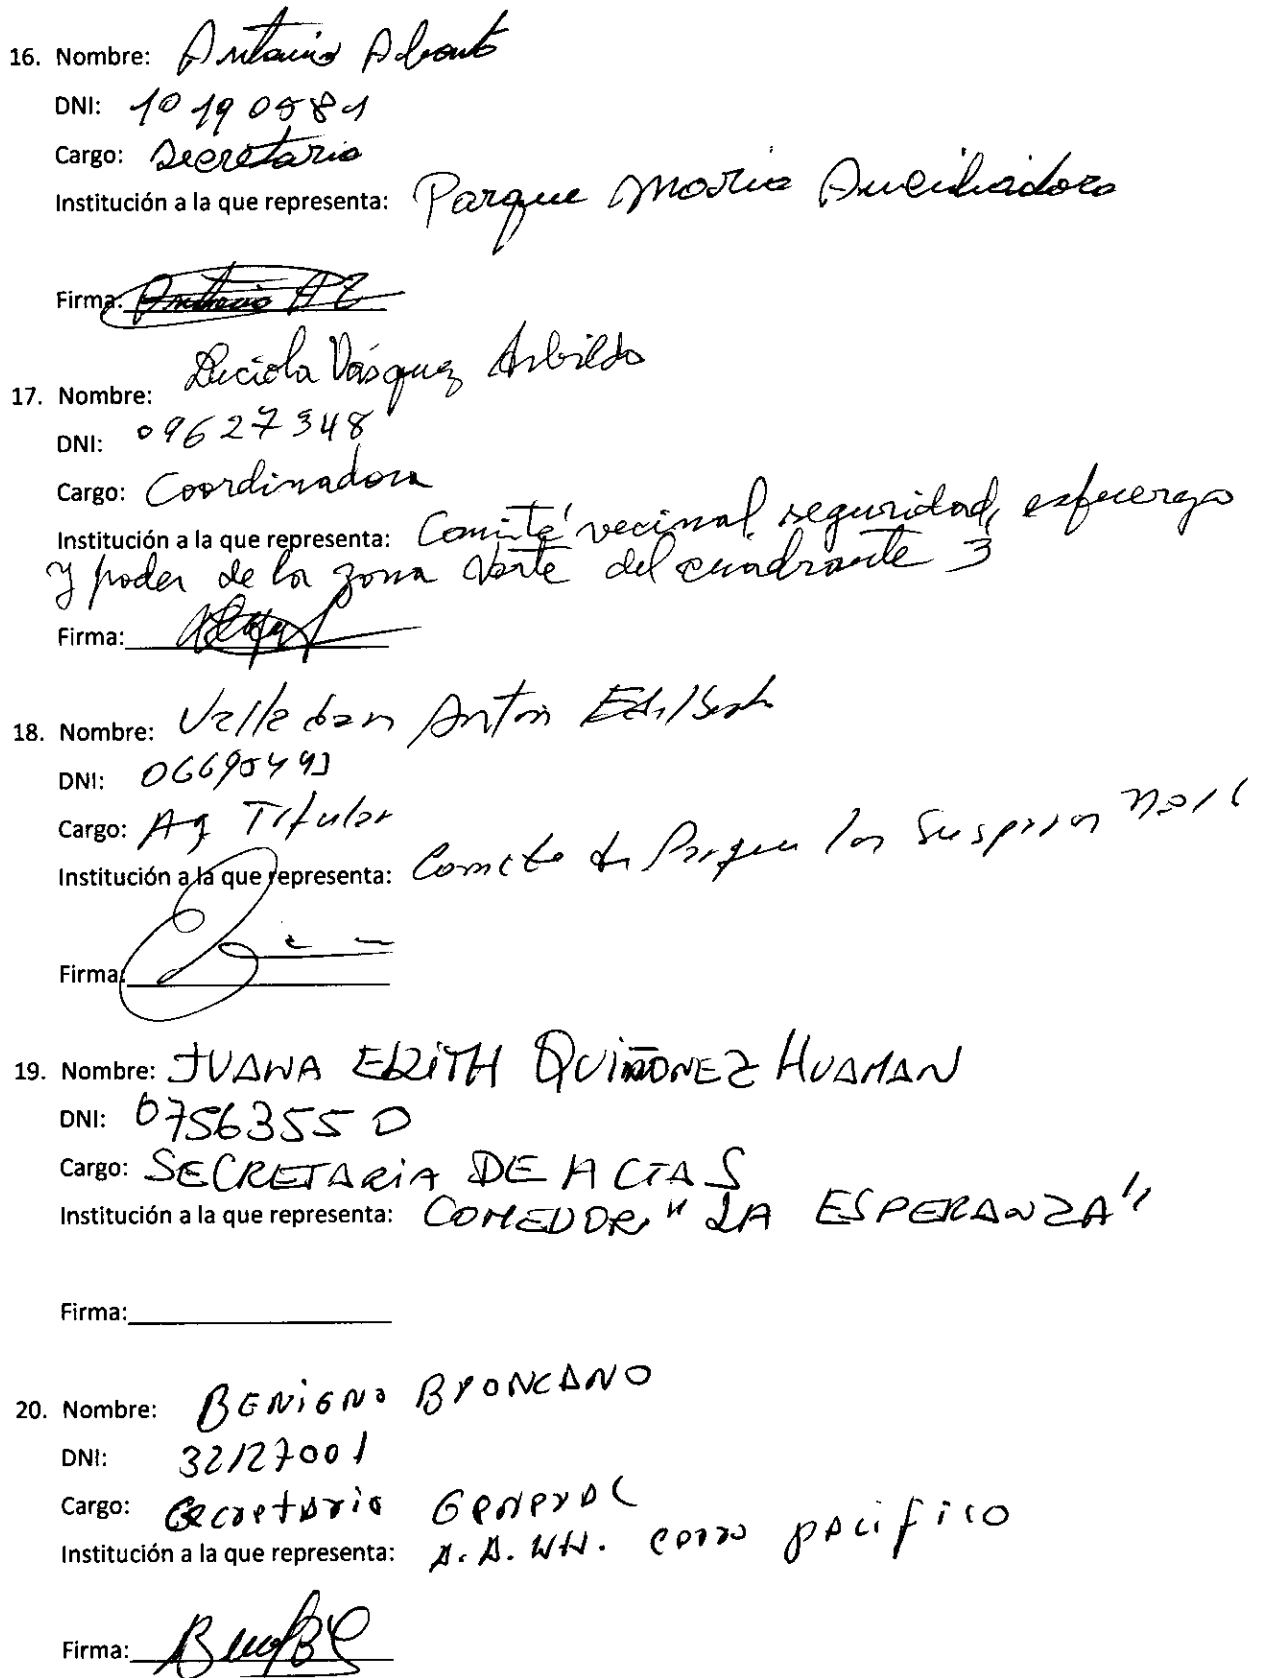 16. Nombre: Antonio Abanto
DNI: 10190581
Cargo: Secretario
Institución a la que representa: Parque Maria Auxiliadora
Firma: Antonio AZ
17. Nombre: Luciola Vásquez Arbildo
DNI: 09627348
Cargo: Coordinadora
Institución a la que representa: Comité vecinal seguridad, esfuerzo
y poder de la zona Norte del cuadrante 3
Firma:
18. Nombre: Valladan Anton Edilberto
DNI: 06690493
Cargo: Ag Titular
Institución a la que representa: Comite de Parque los Suspiros
Firma:
19. Nombre: JUANA EDITH QUIÑONEZ HUAMAN
DNI: 07563550
Cargo: SECRETARIA DE ACTAS
Institución a la que representa: COMEDOR "LA ESPERANZA"
Firma:
20. Nombre: BENIGNO BRONCANO
DNI: 32127001
Cargo: Secretario General
Institución a la que representa: A.A. HH. cerro pacifico
Firma: